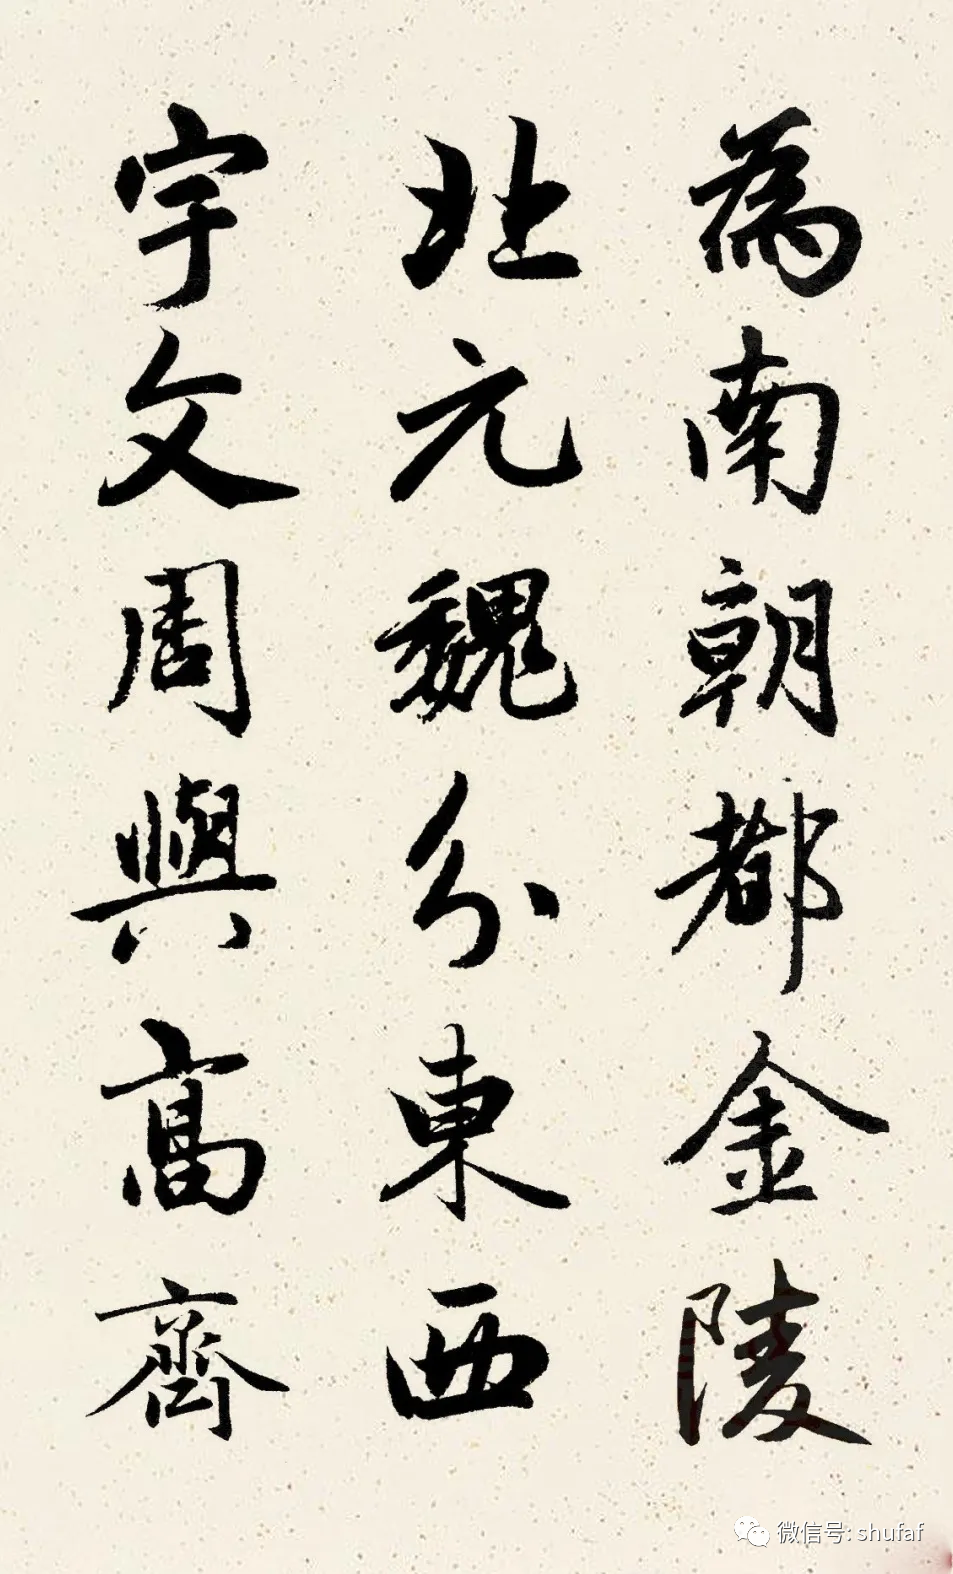 為南朝都金陵
北元魏分東西
宇文周與高齊
微信号: shufaf